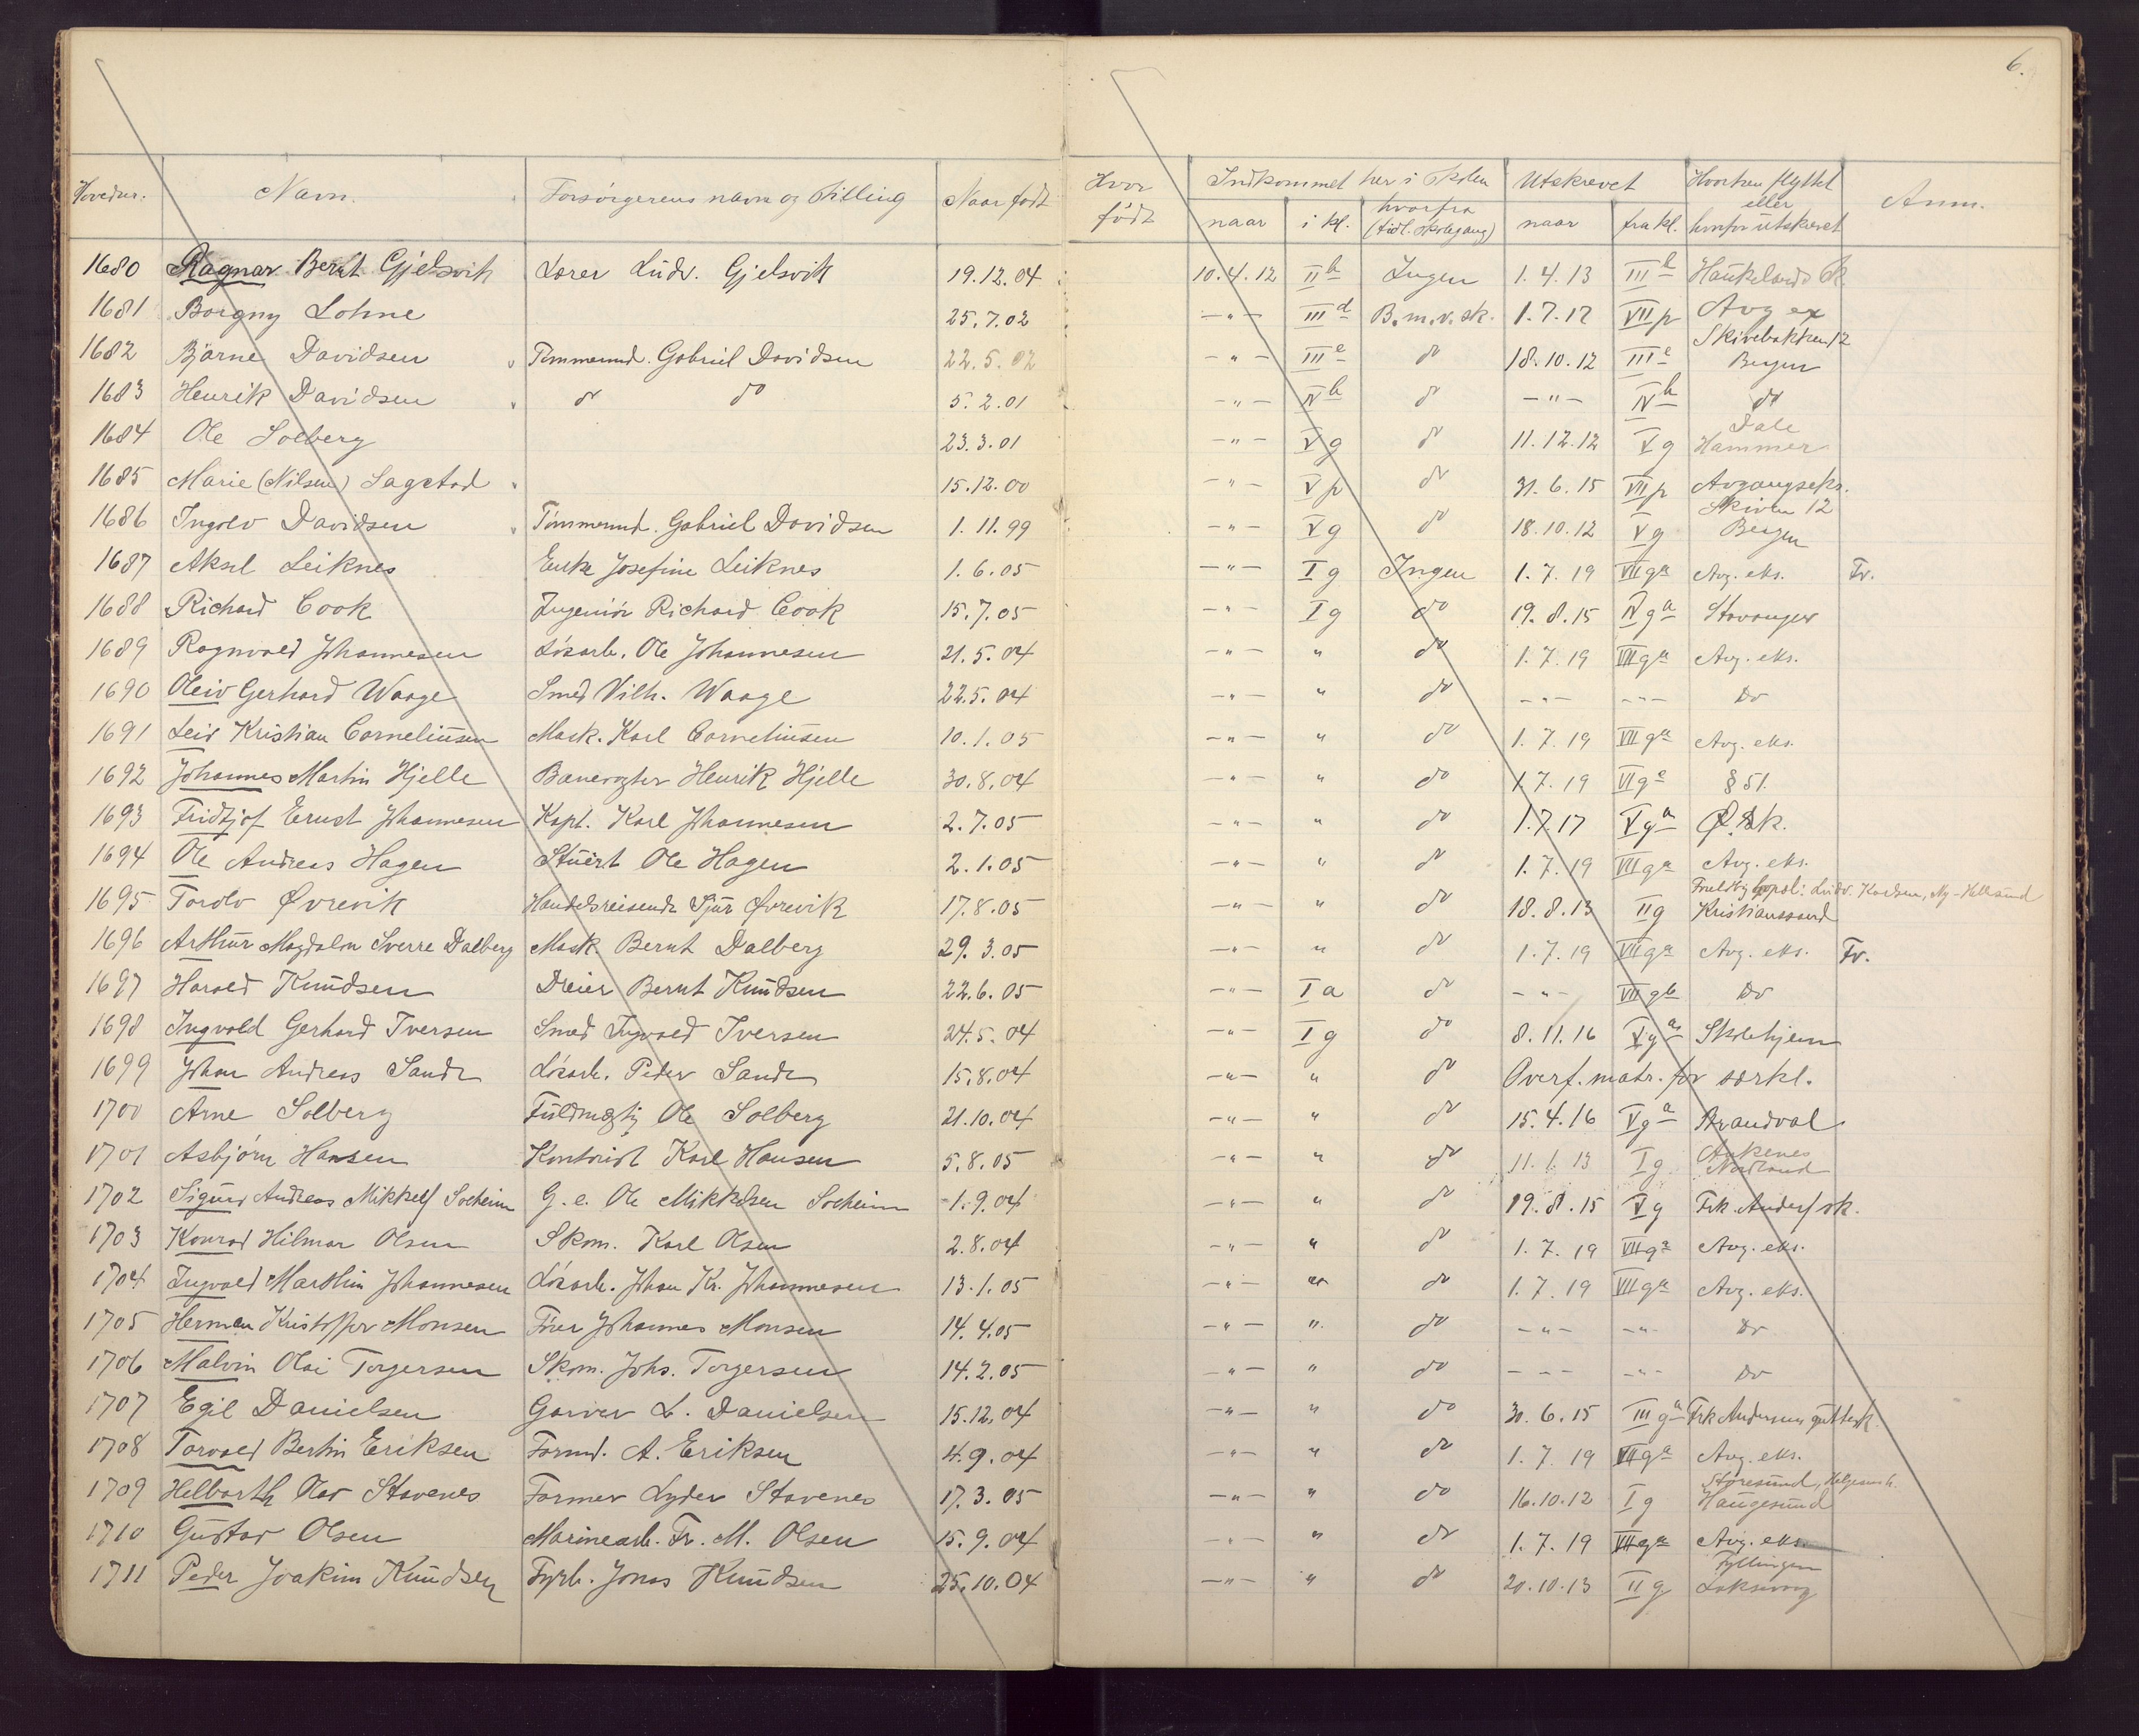 6.
Hovednr. Navn. Forsörgerens navn og Stilling Naar född Hvor född Indkommet her i Skolen naar i kl. hvorfra (tidl. skolegang) Utskrevet naar fra kl. Hvorhen flyttet eller hvorfor utskrevet Anm.
1680 Ragnar Bernt Gjelsvik Lærer Ludv. Gjelsvik 19.12.04 10.4.12 II b Ingen 1.4.13 III b Haukelands Sk.
1681 Borgny Lohne 25.7.02 -"- III d B.m.v.sk. 1.7.17 VII p Avg ex
1682 Bjarne Davidsen Tömmermd. Gabriel Davidsen 22.5.02 -"- III e do 18.10.12 III e Skivebakken 12 Bergen
1683 Henrik Davidsen do do 5.2.01 -"- IV b do -"- IV b do
1684 Ole Solberg 23.3.01 -"- V g do 11.12.12 V g Dale Hammer
1685 Marie (Nilsen) Sagstad 15.12.00 -"- V p do 31.6.15 VII p Avgangseks.
1686 Ingolv Davidsen Tömmermd. Gabriel Davidsen 1.11.99 -"- V g do 18.10.12 V g Skiven 12 Bergen
1687 Aksel Leiknes Enke Josefine Leiknes 1.6.05 -"- I g Ingen 1.7.19 VII g a Avg. eks. Fr.
1688 Richard Cook Ingeniör Richard Cook 15.7.05 -"- I g do 19.8.15 IV g a Stavanger
1689 Ragnvald Johannesen Lösarb. Ole Johannesen 21.5.04 -"- " do 1.7.19 VII g a Avg. eks.
1690 Oleiv Gerhard Waage Smed Vilh. Waage 22.5.04 -"- " do -"- -"- Do
1691 Leiv Kristian Corneliussen Mask. Karl Corneliussen 10.1.05 -"- " do 1.7.19 VII g a Avg. eks.
1692 Johannes Martin Hjelle Banevogter Henrik Hjelle 30.8.04 -"- " do 1.7.19 VI g e § 51.
1693 Fridtjof Ernst Johannesen Kapt. Karl Johannesen 2.7.05 -"- " do 1.7.17 V g a
1694 Ole Andreas Hagen Stuert Ole Hagen 2.1.05 -"- " do 1.7.19 VII g a Avg. eks.
1695 Torolv Øvrevik Handelsreisende Sjur Øvrevik 17.8.05 -"- " do 18.8.13 II g Kristianssand
1696 Arthur Magdalon Sverre Dalberg Mask. Bernt Dalberg 29.3.05 -"- " do 1.7.19 VII g a Avg. eks. Fr.
1697 Harald Knudsen Dreier Bernt Knudsen 22.6.05 -"- I a do -"- VII g b Do
1698 Ingvald Gerhard Iversen Smed Ingvald Iversen 24.5.04 -"- I g do 8.11.16 V g a Skolehjem
1699 Johan Andreas Sande Lösarb. Peder Sande 15.8.04 -"- " do Overf. matr. for særkl.
1700 Arne Solberg Fuldmægtig Ole Solberg 21.10.04 -"- " do 15.4.16 V g a Brandval
1701 Asbjörn Hansen Kontorist Karl Hansen 5.8.05 -"- " do 11.1.13 I g Ankenes Nordland
1702 Sigurd Andreas Mikkels Solheim G.e. Ole Mikkelsen Solheim 1.9.04 -"- " do 19.8.15 V g Frk. Anders sk.
1703 Konrad Hilmar Olsen Skom. Karl Olsen 2.8.04 -"- " do 1.7.19 VII g a Avg. eks.
1704 Ingvald Marthin Johannesen Lösarb. Johan Kr. Johannesen 13.1.05 -"- " do 1.7.19 VII g a Avg. eks.
1705 Herman Kristoffer Monsen Johannes Monsen 14.4.05 -"- " do -"- -"- Do
1706 Malvin Olai Torgersen Skom. Johs. Torgersen 14.2.05 -"- " do -"- -"- Do
1707 Egil Danielsen Garver L. Danielsen 15.12.04 -"- " do 30.6.15 III g a Frk Andersens guttesk.
1708 Torvald Bertin Eriksen Formd. A. Eriksen 4.9.04 -"- " do 1.7.19 VII g a Avg. eks.
1709 Helbarth Olav Stavenes Former Lyder Stavenes 17.3.05 -"- " do 16.10.12 I g Haugesund
1710 Gustav Olsen Marinearb. Fr. M. Olsen 15.9.04 -"- " do 1.7.19 VII g a Avg. eks.
1711 Peder Joakim Knudsen Fyrb. Jonas Knudsen 25.10.04 -"- " do 20.10.13 II g Fyllingen Laksevaag